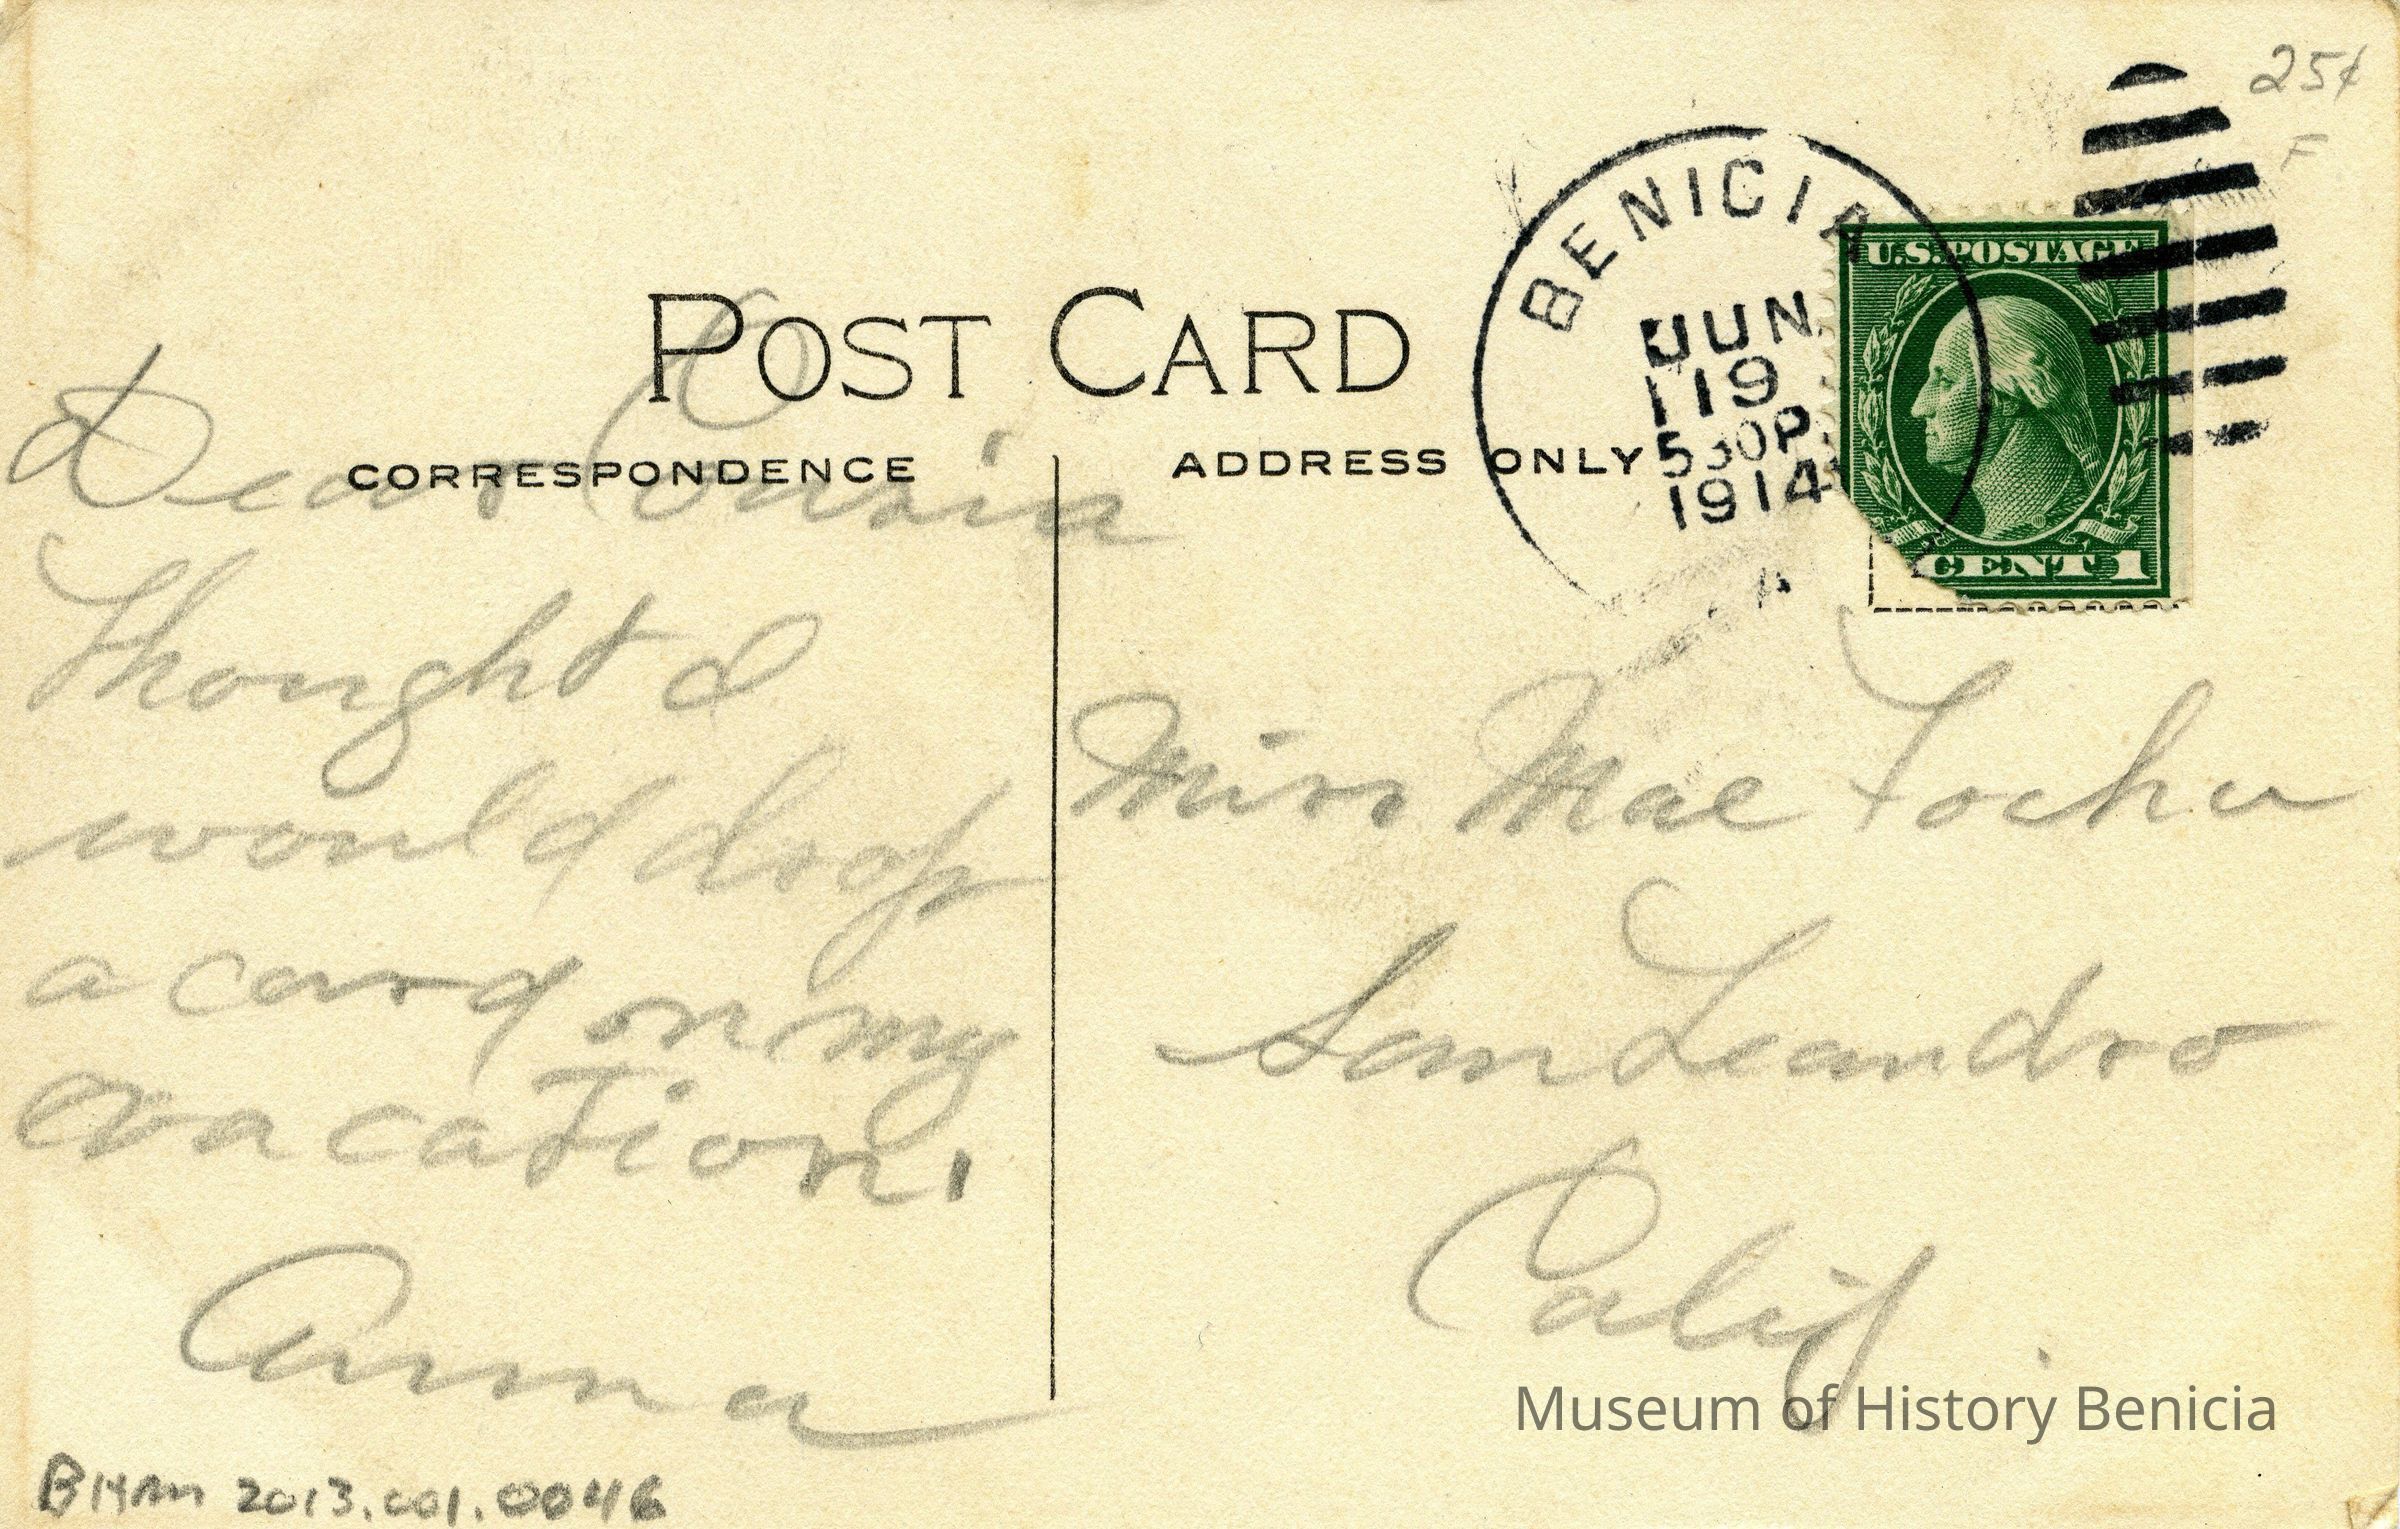 25¢
F
BENICIA
JUN
19
530P
1914
U.S. POSTAGE
CENT 1
POST CARD
CORRESPONDENCE
ADDRESS ONLY
Dear Cousin
Thought I
would drop
a card on my
vacation.
Anna
Miss Mae
San Leandro
Calif.
Museum of History Benicia
BHM 2013.001.0046